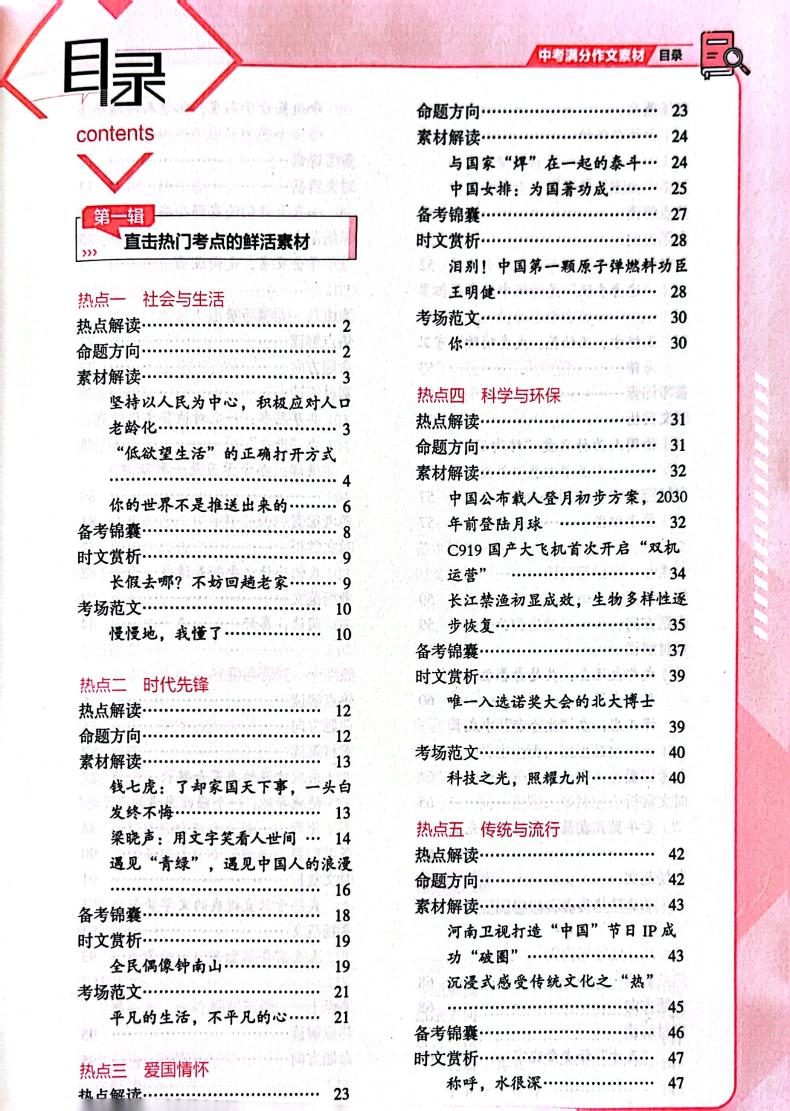 中考满分作文素材 目录
目录
contents
第一辑
直击热门考点的鲜活素材
热点一 社会与生活
热点解读……2
命题方向……2
素材解读……3
坚持以人民为中心，积极应对人口
老龄化……3
“低欲望生活”的正确打开方式
……4
你的世界不是推送出来的……6
备考锦囊……8
时文赏析……9
长假去哪？不妨回趟老家……9
考场范文……10
慢慢地，我懂了……10
热点二 时代先锋
热点解读……12
命题方向……12
素材解读……13
钱七虎：了却家国天下事，一头白
发终不悔……13
梁晓声：用文字笑看人世间……14
遇见“青绿”，遇见中国人的浪漫
……16
备考锦囊……18
时文赏析……19
全民偶像钟南山……19
考场范文……21
平凡的生活，不平凡的心……21
热点三 爱国情怀
热点解读……23
命题方向……23
素材解读……24
与国家“焊”在一起的泰斗……24
中国女排：为国著功成……25
备考锦囊……27
时文赏析……28
泪别！中国第一颗原子弹燃料功臣
王明健……28
考场范文……30
你……30
热点四 科学与环保
热点解读……31
命题方向……31
素材解读……32
中国公布载人登月初步方案，2030
年前登陆月球……32
C919国产大飞机首次开启“双机
运营”……34
长江禁渔初显成效，生物多样性逐
步恢复……35
备考锦囊……37
时文赏析……39
唯一入选诺奖大会的北大博士
……39
考场范文……40
科技之光，照耀九州……40
热点五 传统与流行
热点解读……42
命题方向……42
素材解读……43
河南卫视打造“中国”节日IP成
功“破圈”……43
沉浸式感受传统文化之“热”
……45
备考锦囊……46
时文赏析……47
称呼，水很深……47